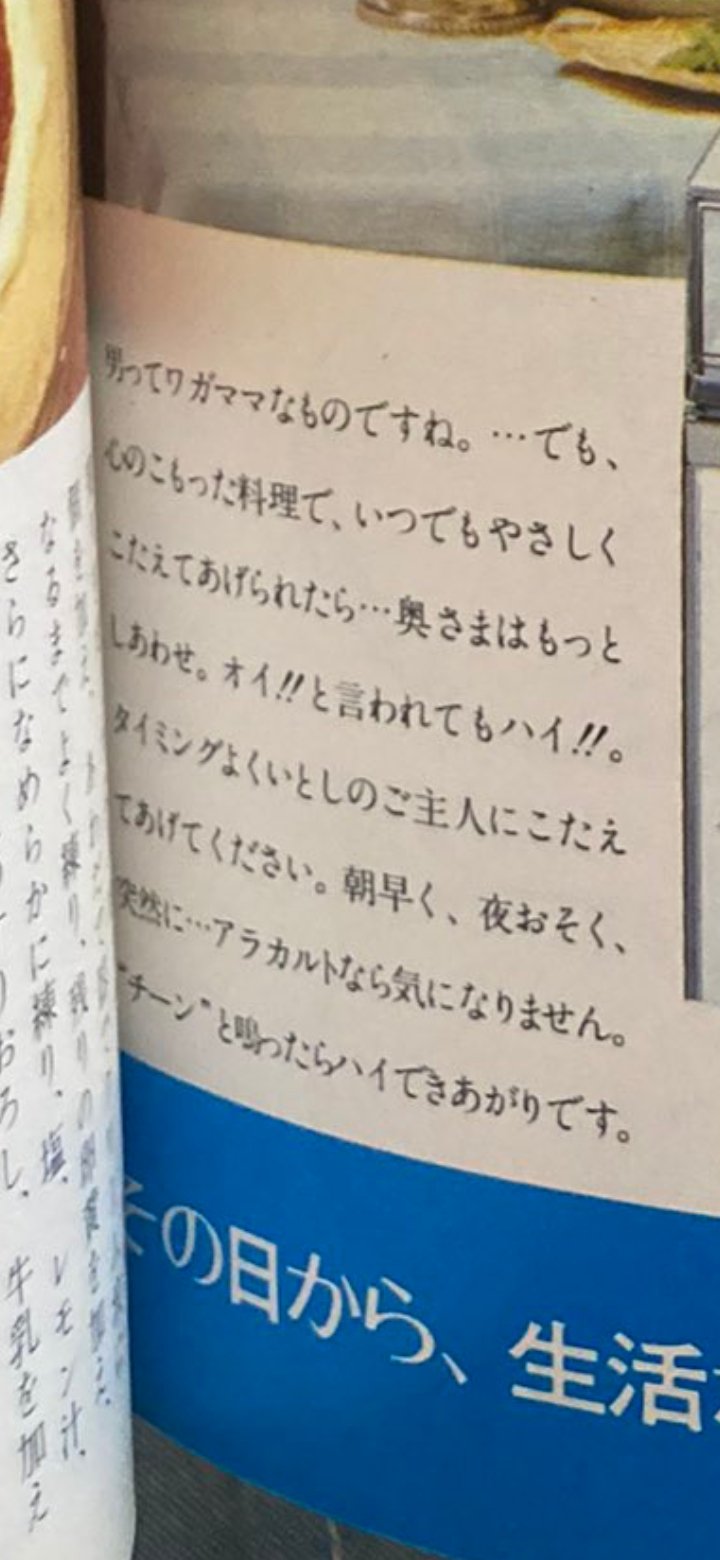 男ってワガママなものですね。…でも、
心のこもった料理で、いつでもやさしく
こたえてあげられたら…奥さまはもっと
しあわせ。オイ!!と言われてもハイ!!。
タイミングよくいとしのご主人にこたえ
てあげてください。朝早く、夜おそく、
突然に…アラカルトなら気になりません。
“チーン”と鳴ったらハイできあがりです。
その日から、生活
なるまでよく練り、残りの
さらになめらかに練り、塩、レモン汁、
おろし、牛乳を加え